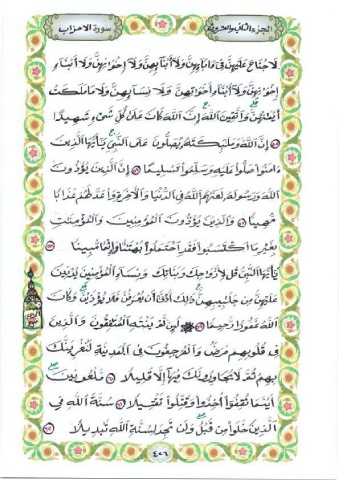 الجزء الثاني والعشرون
سورة الاحزاب
لا جناح عليهن في ءابائهن ولا أبنائهن ولا إخوانهن ولا أبناء
إخوانهن ولا أبناء أخواتهن ولا نسائهن ولا ما ملكت
أيمنهن واتقين الله إن الله كان على كل شىء شهيدا
۵۵ إن الله وملئكته يصلون على النبي يأيها الذين
ءامنوا صلوا عليه وسلموا تسليما ۵٦ إن الذين يؤذون
الله ورسوله لعنهم الله في الدنيا والأخرة وأعد لهم عذابا
مهينا ۵٧ والذين يؤذون المؤمنين والمؤمنت
بغير ما اكتسبوا فقد احتملوا بهتنا وإثما مبينا ۵٨
يأيها النبي قل لأزوجك وبناتك ونساء المؤمنين يدنين
عليهن من جلبيبهن ذلك أدنى أن يعرفن فلا يؤذين وكان
الله غفورا رحيما ۵٩ لئن لم ينته المنفقون والذين
في قلوبهم مرض والمرجفون في المدينة لنغرينك
بهم ثم لا يجاورونك فيها إلا قليلا ٦٠ ملعونين
أينما ثقفوا أخذوا وقتلوا تقتيلا ٦١ سنة الله في
الذين خلوا من قبل ولن تجد لسنة الله تبديلا ٦٢
٤٠٦